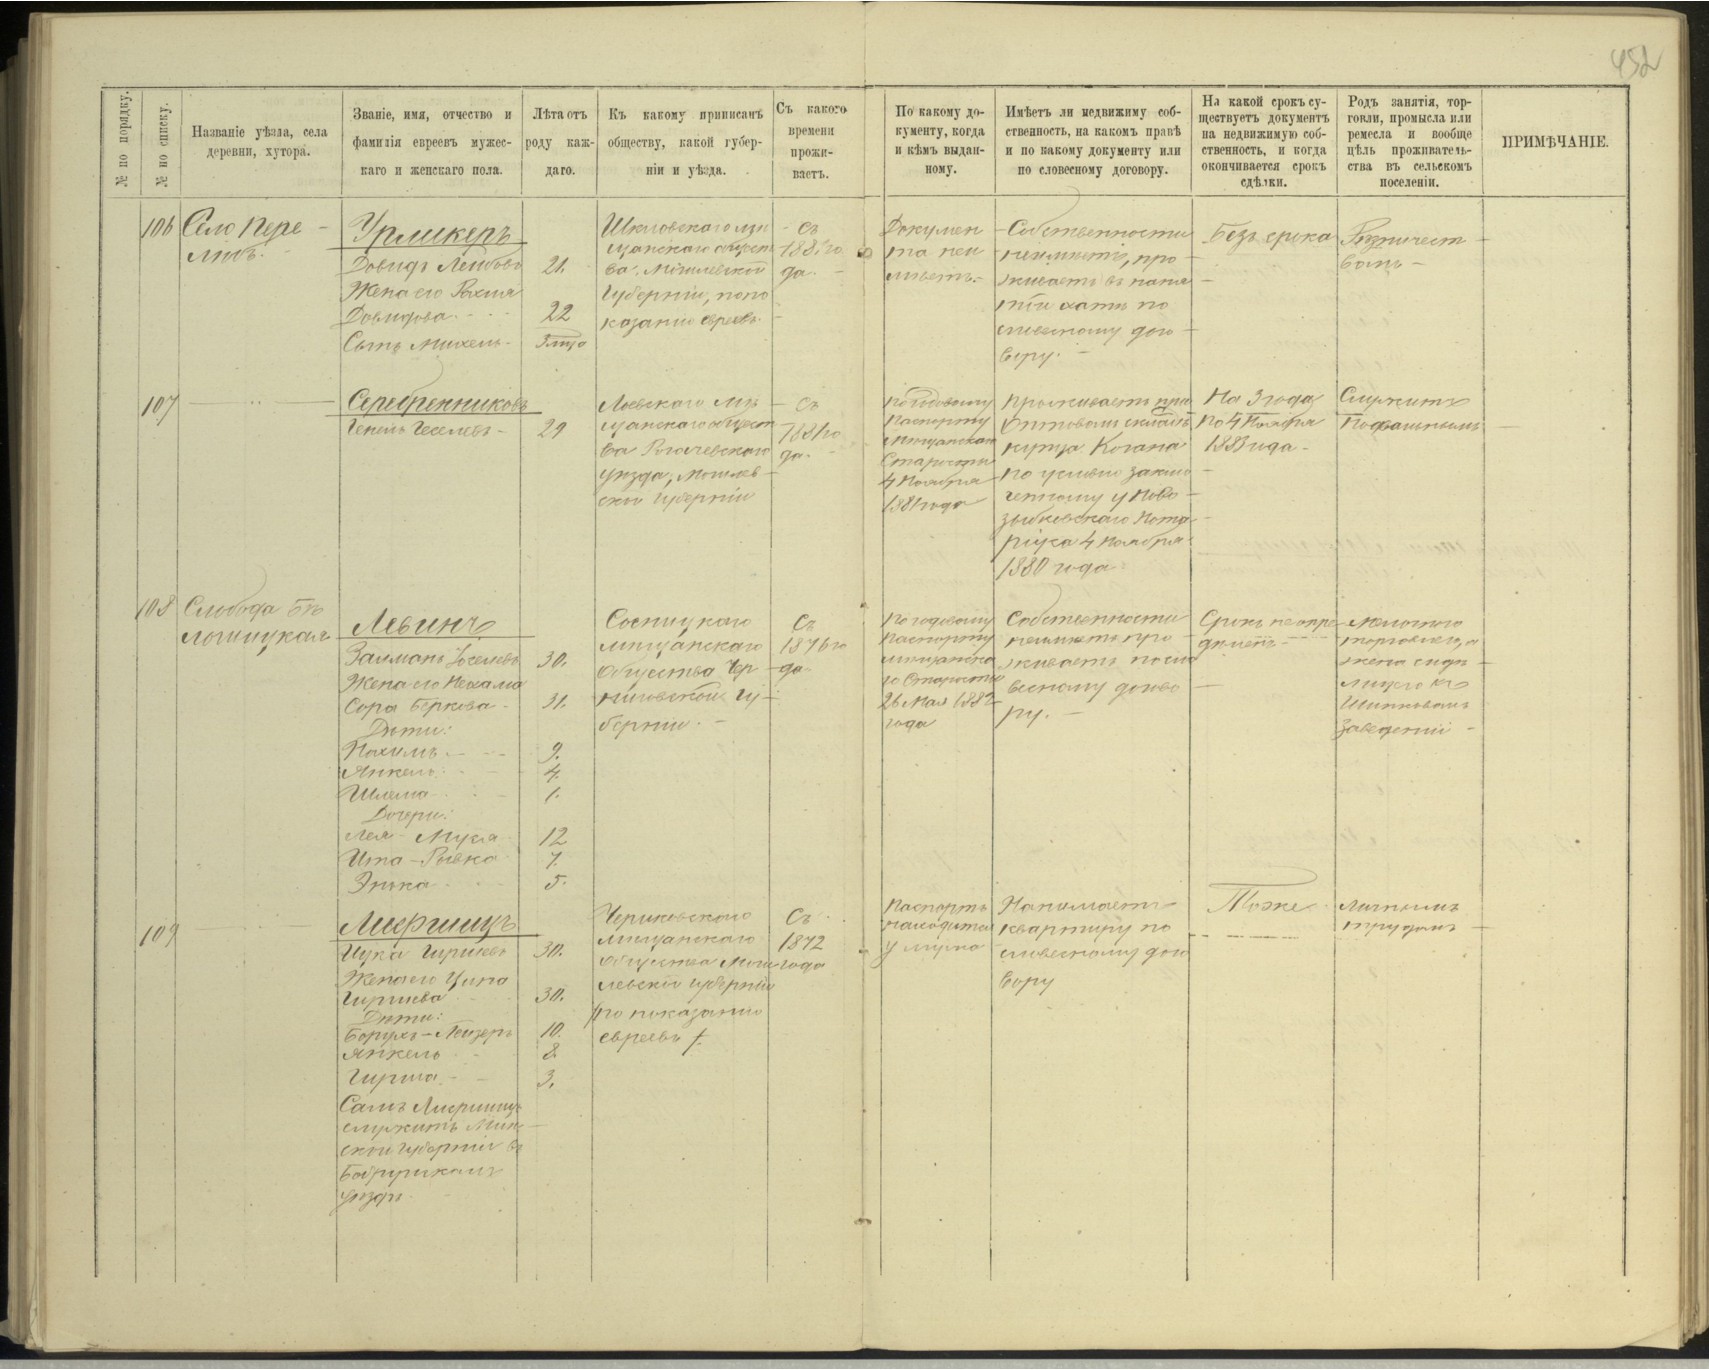 452
№ по порядку.
№ по списку.
Названіе уѣзда, села
деревни, хутора.
Званіе, имя, отчество и
фамилія евреевъ мужес-
каго и женскаго пола.
Лѣта отъ
роду каж-
даго.
Къ какому приписанъ
обществу, какой губер-
ніи и уѣзда.
Съ какого
времени
прожи-
ваетъ.
По какому до-
кументу, когда
и кѣмъ выдан-
ному.
Имѣетъ ли недвижиму соб-
ственность, на какомъ правѣ
и по какому документу или
по словесному договору.
На какой срокъ су-
ществуетъ документъ
на недвижимую соб-
ственность, и когда
окончивается срокъ
сдѣлки.
Родъ занятія, тор-
говли, промысла или
ремесла и вообще
цѣль проживатель-
ства въ сельскомъ
поселеніи.
ПРИМѢЧАНІЕ.
106
Село Пере
любъ.
Урликеръ
Довидъ Лейбовъ
21.
Жена его Рахля
Довидова
22
Сынъ Михель
Шкловскаго мѣ
щанскаго общест
ва, Могилевской
Губерніи, по по
казанію евреевъ
съ
да.
Докумен
та не и
мѣетъ.
Собственности
неимѣетъ, про
живаетъ въ наня
той хатѣ по
словесному дого
вору.
Безъ срока
107
Серебренниковъ
29
Лоевскаго мѣ
щанскаго общест
ва Рогачевскаго
уѣзда, Могилев
ской губерніи
съ
1881 го
да.
По годовому
паспорту
мѣщанскаго
Старосты
4 Ноября
1881 года
Проживаетъ при
оптовомъ складѣ
купца Когана
по условію заклю
ченному у Ново
зыбковскаго Нота
ріуса 4 Ноября
1880 года
На 3 года
по 4 Ноября
1883 года
Служитъ
108
Слобода Бѣ
Левинъ
Залманъ Іоселевъ
30.
Жена его Нехама
Сора Беркова
31.
Дѣти:
Нохимъ
9.
Янкель
4.
Шлема
1.
Дочери:
Лея
12
Ита-Ривка
7.
Энька
5.
Сосницкаго
мѣщанскаго
общества Чер
ниговской Гу
берніи.
Съ
1876 го
да
По годовому
паспорту
мѣщанска
го Старосты
26 Мая 1882
года
Собственности
неимѣетъ про
живаетъ по сло
весному догово
ру.
Срокъ не опре
дѣленъ
Мелочною
торговлею, а
жена сидѣ
лицею въ
Шинковомъ
заведеніи
109
Лифшицъ
30.
Жена его Ципа
Гиршева
30.
Дѣти:
Борухъ-Лейзеръ
10.
Янкель
8.
Гирша
3.
Самъ Лифшицъ
служитъ Мин
ской губерніи въ
Бобруйскомъ
уѣздѣ
Чериковскаго
мѣщанскаго
общества Моги
левской губерніи
/по показанію
евреевъ/.
Съ
1872
года
Паспортъ
находится
у мужа
Нанимаетъ
квартиру по
словесному дого
вору
Тоже
Личнымъ
трудомъ